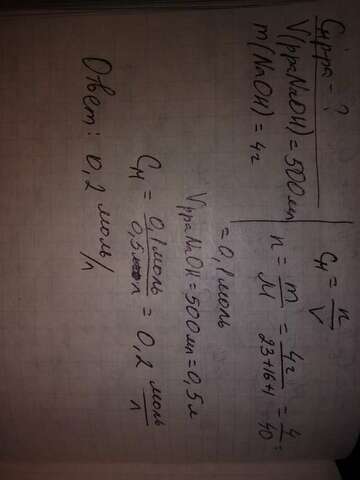 Cн р-ра - ?
V(р-ра NaOH) = 500 мл
m(NaOH) = 4г
Cн = n/V
n = m/M = 4г/23+16+1 = 4/40 =
= 0,1 моль
Vр-ра NaOH = 500 мл = 0,5 л
Cм = 0,1 моль/0,5 л = 0,2 моль/л
Ответ: 0,2 моль/л